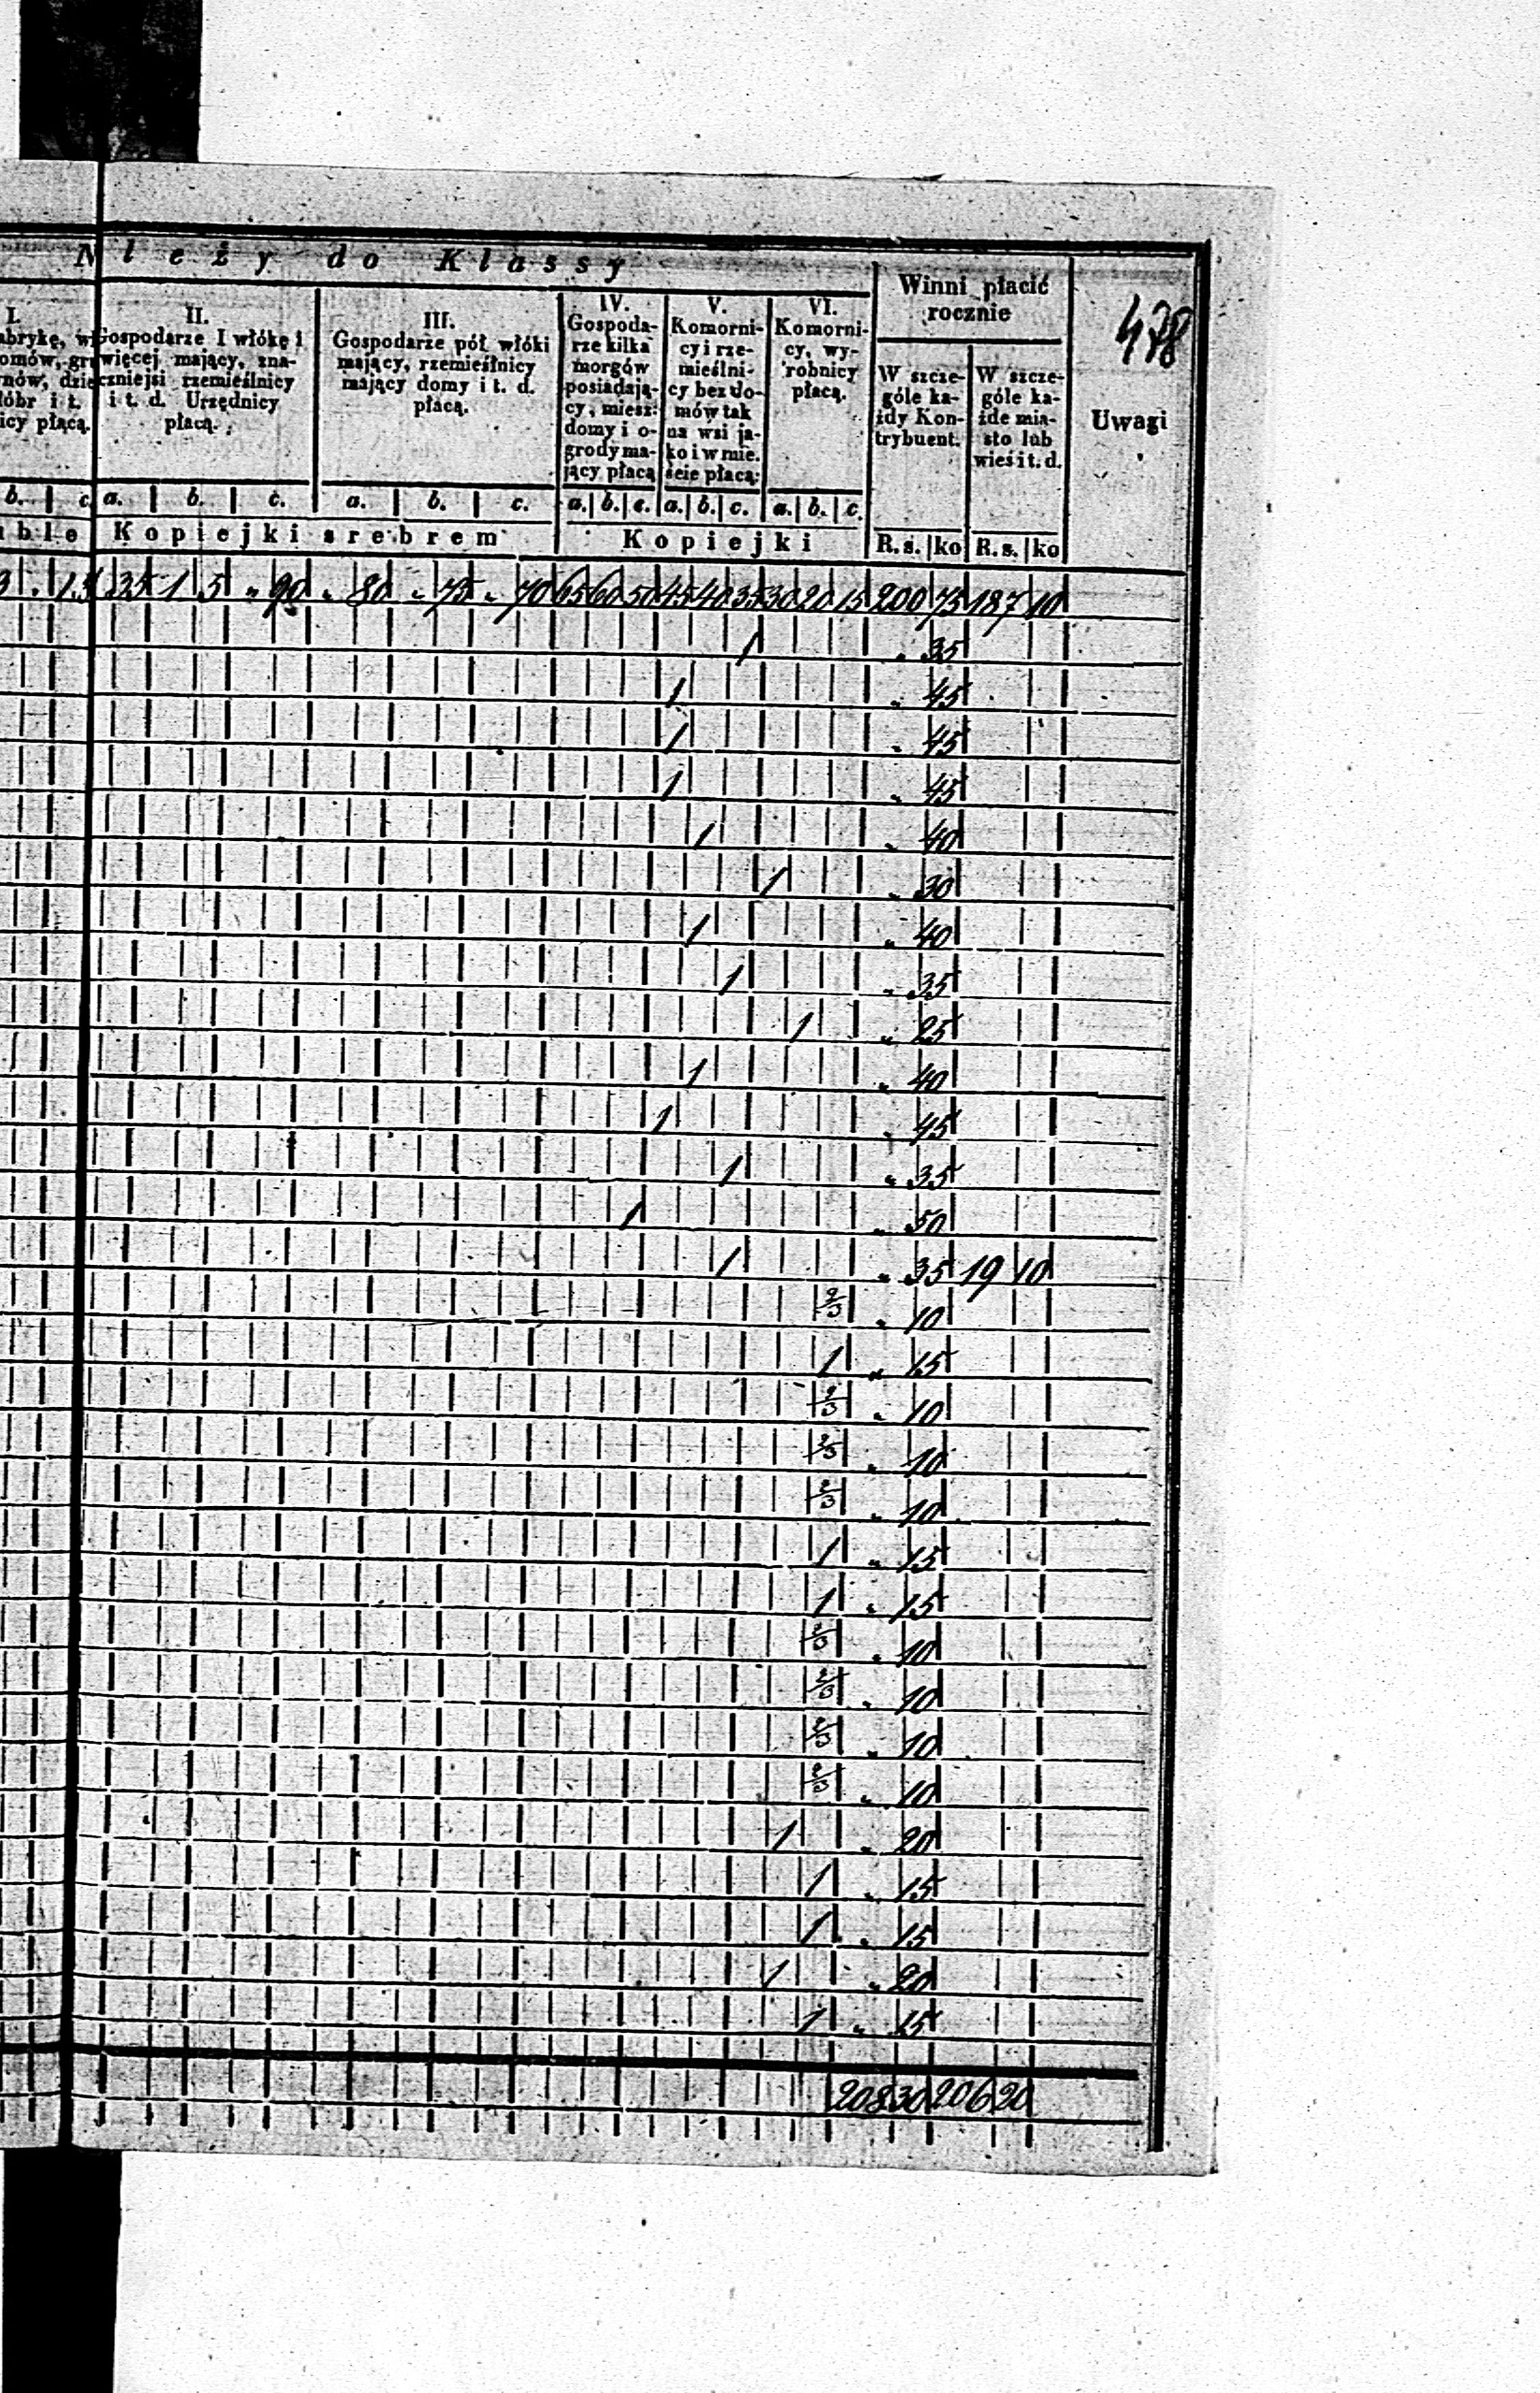 N l e ż y   d o   K l a s s y
Winni płacić rocznie
478
I.
abrykę, w
omów, gr
nów, dzie
óbr i t.
icy płącą.
II.
Gospodarze I włókę i
więcej mający, zna-
czniejsi rzemieślnicy
i t. d. Urzędnicy
płacą.
III.
Gospodarze pół włóki
mający, rzemieślnicy
mający domy i t. d.
płacą.
IV.
Gospoda-
rze kilka
morgów
posiadają-
cy, miesz:
domy i o-
grody ma-
jący płacą
V.
Komorni-
cy i rze-
mieślni-
cy bez do-
mów tak
na wsi ja-
ko i w mie.
ście płacą:
VI.
Komorni-
cy, wy-
robnicy
płacą.
W szcze-
góle ka-
żdy Kon-
trybuent.
W szcze-
góle ka-
żde mia-
sto lub
wieś i t. d.
Uwagi
b. c. a. b. c. a. b. c. a. b. c. a. b. c. a. b. c.
uble Kopiejki srebrem Kopiejki R.s. ko R.s. ko
3 . 15 35 1 5 „ 90 „ 80 „ 75 „ 70 65 60 50 45 40 35 30 20 15 200 75 187 10
1 „ 35
1 „ 45
1 „ 45
1 „ 45
1 „ 40
1 „ 30
1 „ 40
1 „ 35
1 „ 25
1 „ 40
1 „ 45
1 „ 35
1 „ 50
1 „ 35 19 10
2/3 „ 10
1 „ 15
2/3 „ 10
2/3 „ 10
2/3 „ 10
1 „ 15
1 „ 15
2/3 „ 10
2/3 „ 10
2/3 „ 10
2/3 „ 10
1 „ 20
1 „ 15
1 „ 15
1 „ 20
1 „ 15
208 30 206 20